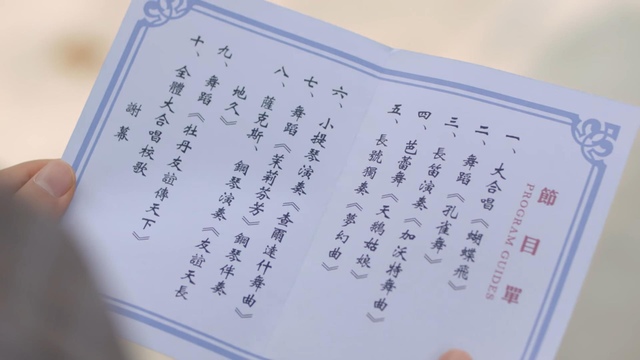 節目單
PROGRAM GUIDES
一、大合唱《蝴蝶飛》
二、舞蹈《孔雀舞》
三、長笛演奏《加沃特舞曲》
四、芭蕾舞《天鵝姑娘》
五、長號獨奏《夢幻曲》
六、小提琴演奏《查爾達什舞曲》
七、舞蹈《茉莉芬芳》鋼琴伴奏
八、薩克斯、鋼琴演奏《友誼天長
地久》
九、舞蹈《牡丹友誼傳天下》
十、全體大合唱校歌
謝幕